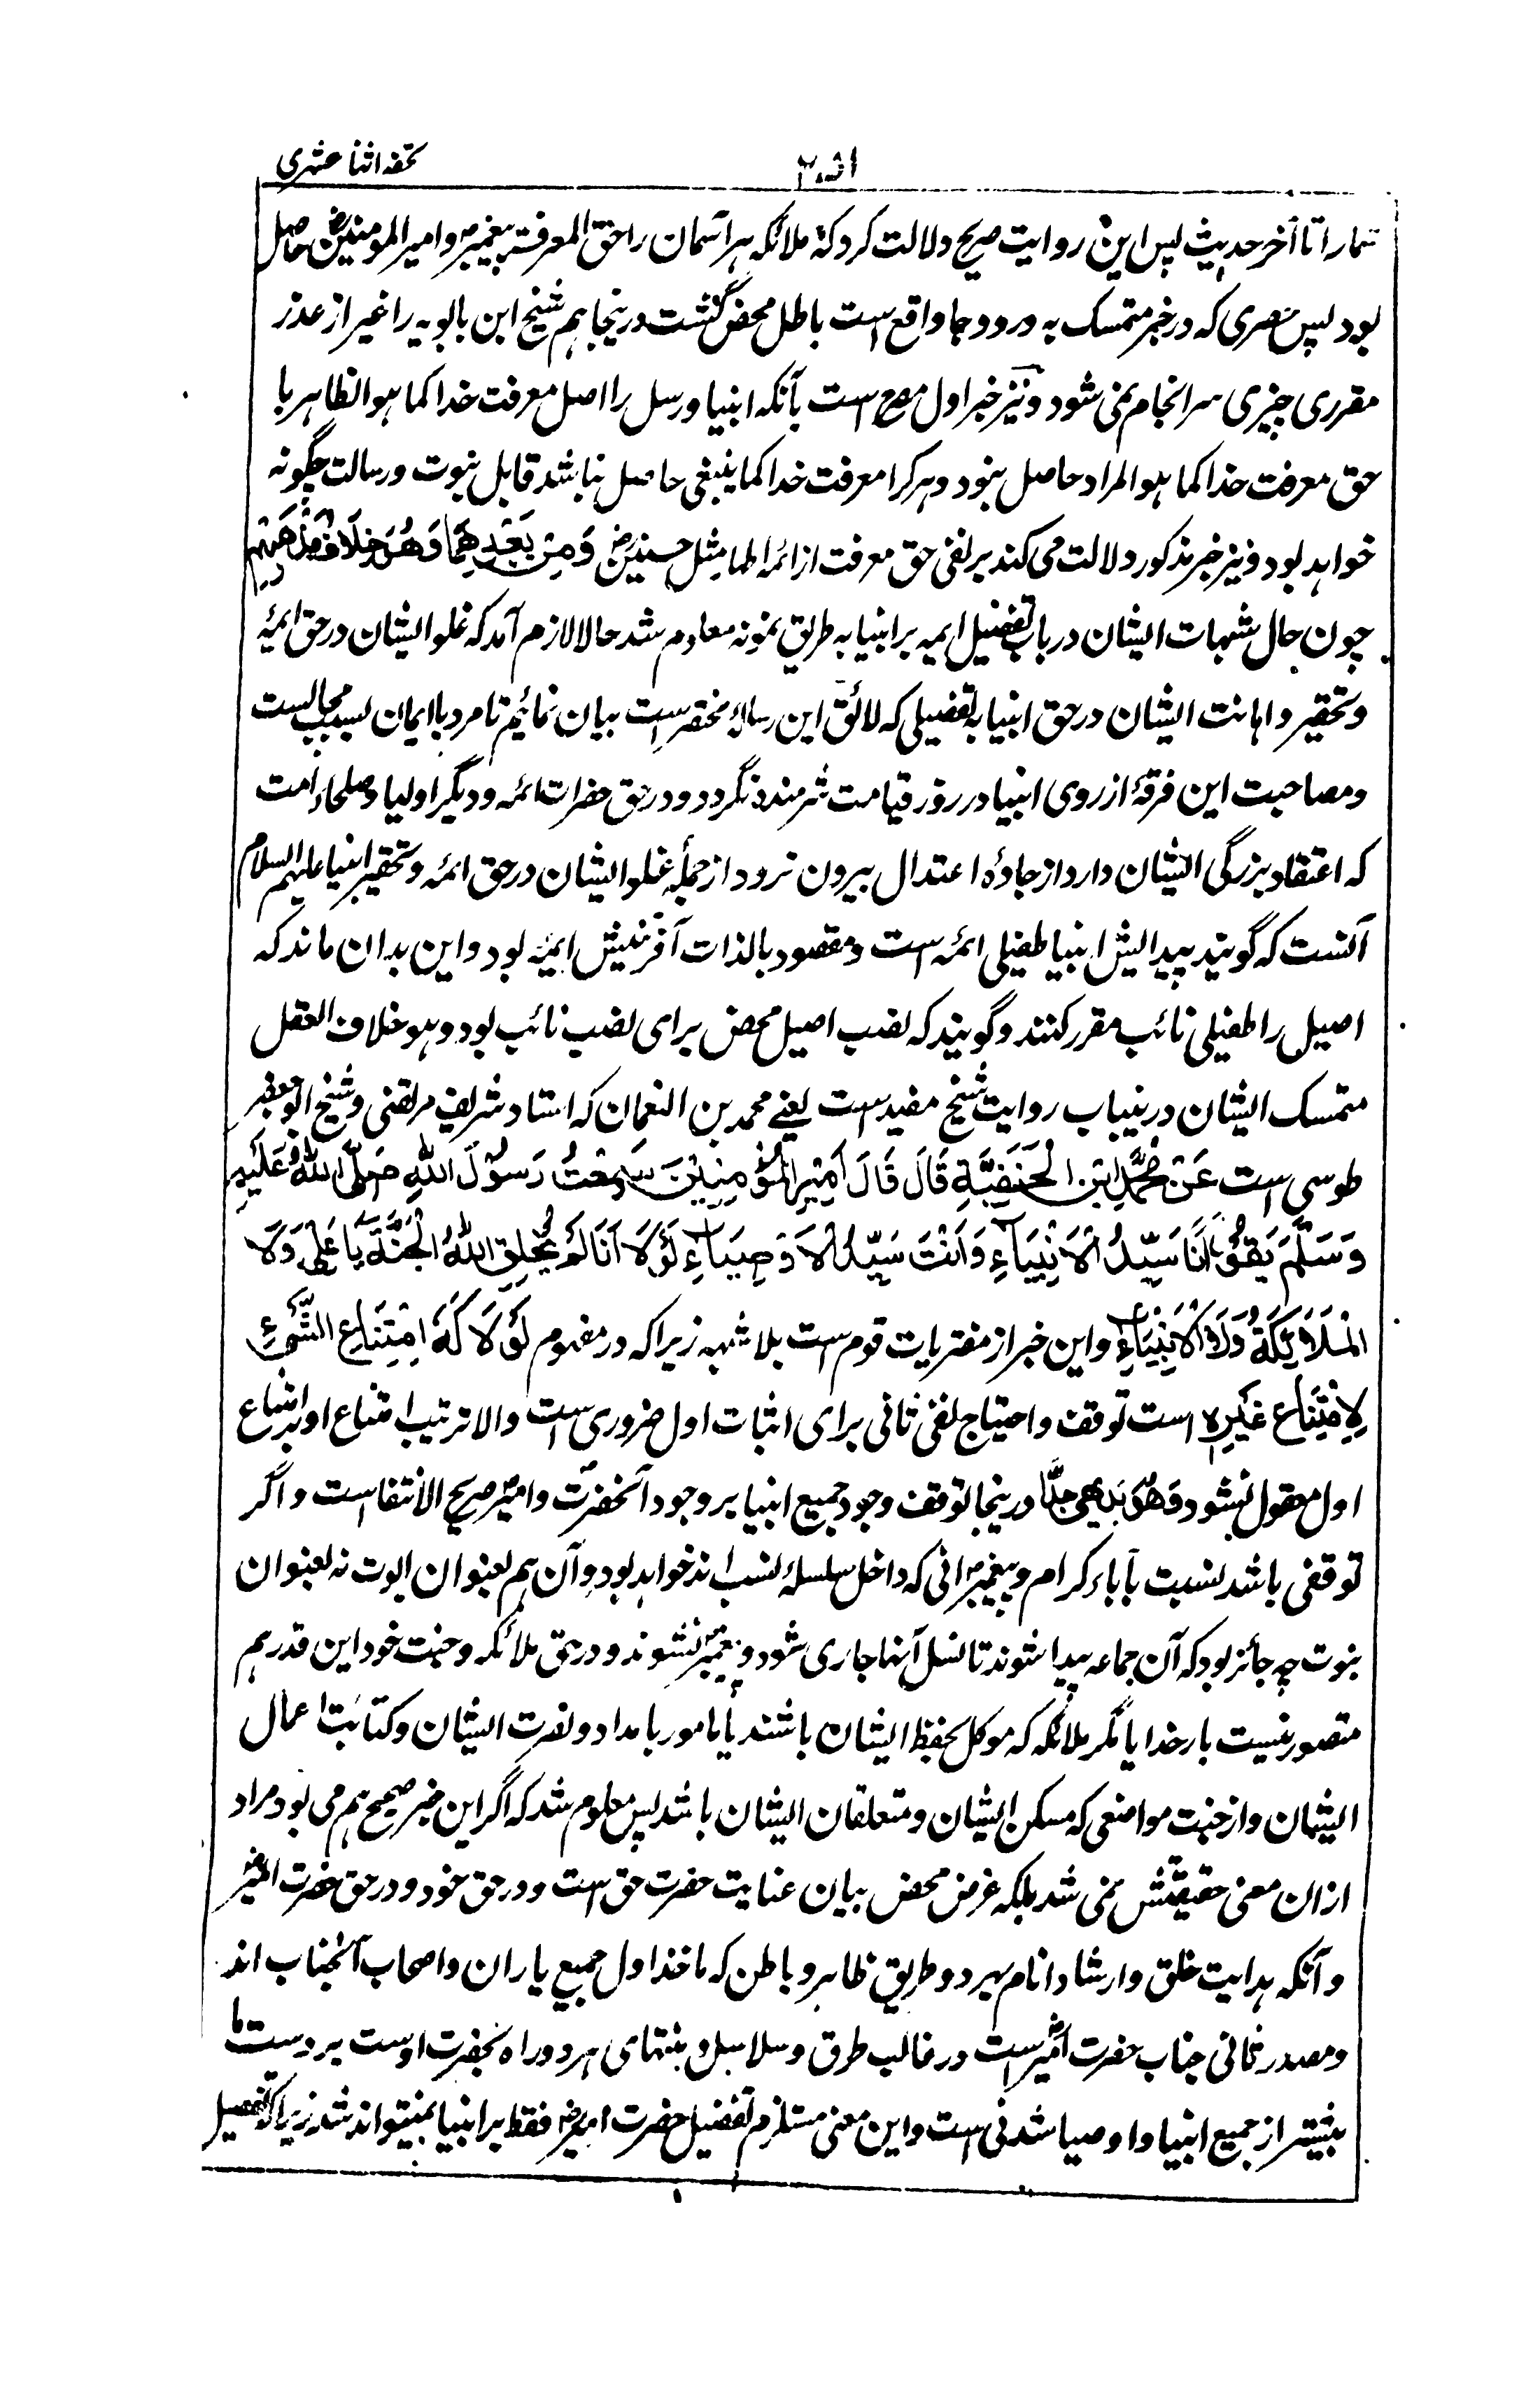 تحفه اثنا عشری
شمارا تا آخر حدیث پس این روایت صریح دلالت کرد که ملائکه هر آسمان را حق المعرفت پیغمبر و امیرالمومنین رض حاصل
بود پس حصری که در خبر متمسک به درود جا واقع است باطل محض گشت درینجا هم شیخ ابن بابویه را غیر از عذر
مقرری چیزی سرانجام نمی شود و نیز خبر اول مصرح است بآنکه انبیا و رسل را اصل معرفت خدا کما هو الظاهر یا
حق معرفت خدا کما هو المراد حاصل نبود و هر کرا معرفت خدا کما ینبغی حاصل نباشد قابل نبوت و رسالت چگونه
خواهد بود و نیز خبر مذکور دلالت می کند بر نفی حق معرفت از ائمه اطهار مثل حسنین رض وَمِنْ بَعْدِهِمَا وَهُوَ خِلَافُ مَذْهَبِهِمْ
چون حال شبهات ایشان در باب تفضیل ایمه بر انبیا به طریق نمونه معلوم شد حالا لازم آمد که غلو ایشان در حق ایمهٔ
و تحقیر و اهانت ایشان در حق انبیا به تفصیلی که لائق این رسالهٔ مختصر است بیان نمائیم تا مرد با ایمان بسبب مجالست
و مصاحبت این فرقهٔ از روی انبیا در روز قیامت شرمنده نگردد و در حق حضرات ائمه و دیگر اولیا و صلحاء امت
که اعتقاد بزرگی ایشان دارد از جادهٔ اعتدال بیرون نرود از جملهٔ غلو ایشان در حق ائمه و تحقیر انبیا علیهم السلام
آنست که گویند پیدایش انبیا طفیلی ائمه است و مقصود بالذات آفرینش ایمهٔ بود و این بدان ماند که
اصیل را طفیلی نائب مقرر کنند و گویند که نصب اصیل محض برای نصب نائب بود و هو خلاف العقل
متمسک ایشان درینباب روایت شیخ مفید است یعنے محمد بن النعمان که استاد شریف مرتضی و شیخ ابو جعفر
طوسی است عَنْ مُحَمَّدِ ابْنِ الْحَنَفِيَّةِ قَالَ قَالَ اَمِيْرُ الْمُؤْمِنِيْنَ سَمِعْتُ رَسُوْلَ اللهِ صَلَّى اللهُ عَلَيْهِ
وَسَلَّمَ يَقُوْلُ اَنَا سَيِّدُ الْاَنْبِيَاءِ وَاَنْتَ سَيِّدُ الْاَوْصِيَاءِ لَوْلَا اَنَا لَمْ يَخْلُقِ اللهُ الْجَنَّةَ يَا عَلِيُّ وَلَا
الْمَلَائِكَةُ وَلَا الْاَنْبِيَاءِ و این خبر از مفتریات قوم است بلا شبهه زیرا که در مفهوم لَوْلَا كَهْ اِمْتِنَاعِ الشَّيْءِ
لِامْتِنَاعِ غَيْرِهٖ است توقف و احتیاج نفی ثانی برای اثبات اول ضروری است و الا ترتیب امتناع او بر امتناع
اول معقول نبشود وَهُوَ بَدِيْهِيٌّ جِدًّا درینجا توقف وجود جمیع انبیا بر وجود آنحضرت و امیر صریح الانتفا است و اگر
توقفی باشد نسبت بآباء کرام و پیغمبرانی که داخل سلسلهٔ نسب اند خواهد بود و آن هم بعنوان ابوت نه بعنوان
نبوت چه جائز بود که آن جماعه پیدا شوند تا نسل آنها جاری شود و پیغمبر نشوند و در حق ملائکه و جنت خود این قدر هم
متصور نیست بار خدایا مگر ملائکه که موکل بحفظ ایشان باشند یا مامور بامداد و نصرت ایشان و کتابت اعمال
ایشان و از جنت مواضعی که مسکن ایشان و متعلقان ایشان باشد پس معلوم شد که اگر این خبر صحیح هم می بود مراد
ازان معنی حقیقتش نمی شد بلکه غرض محض بیان عنایت حضرت حق است و در حق خود و در حق حضرت امیر رض
و آنکه هدایت خلق و ارشاد انام بهر دو طریق ظاهر و باطن که ماخذ اول جمیع یاران و اصحاب آنجناب اند
و مصدر ثانی جناب حضرت امیر است در غالب طرق و سلاسل و بنتهای هر دو راه بحضرت اوست بر دست ما
بیشتر از جمیع انبیا و اوصیا شدنی است و این معنی مستلزم تفضیل حضرت امیر رض فقط بر انبیا نمیتواند شد زیرا که تفصیل